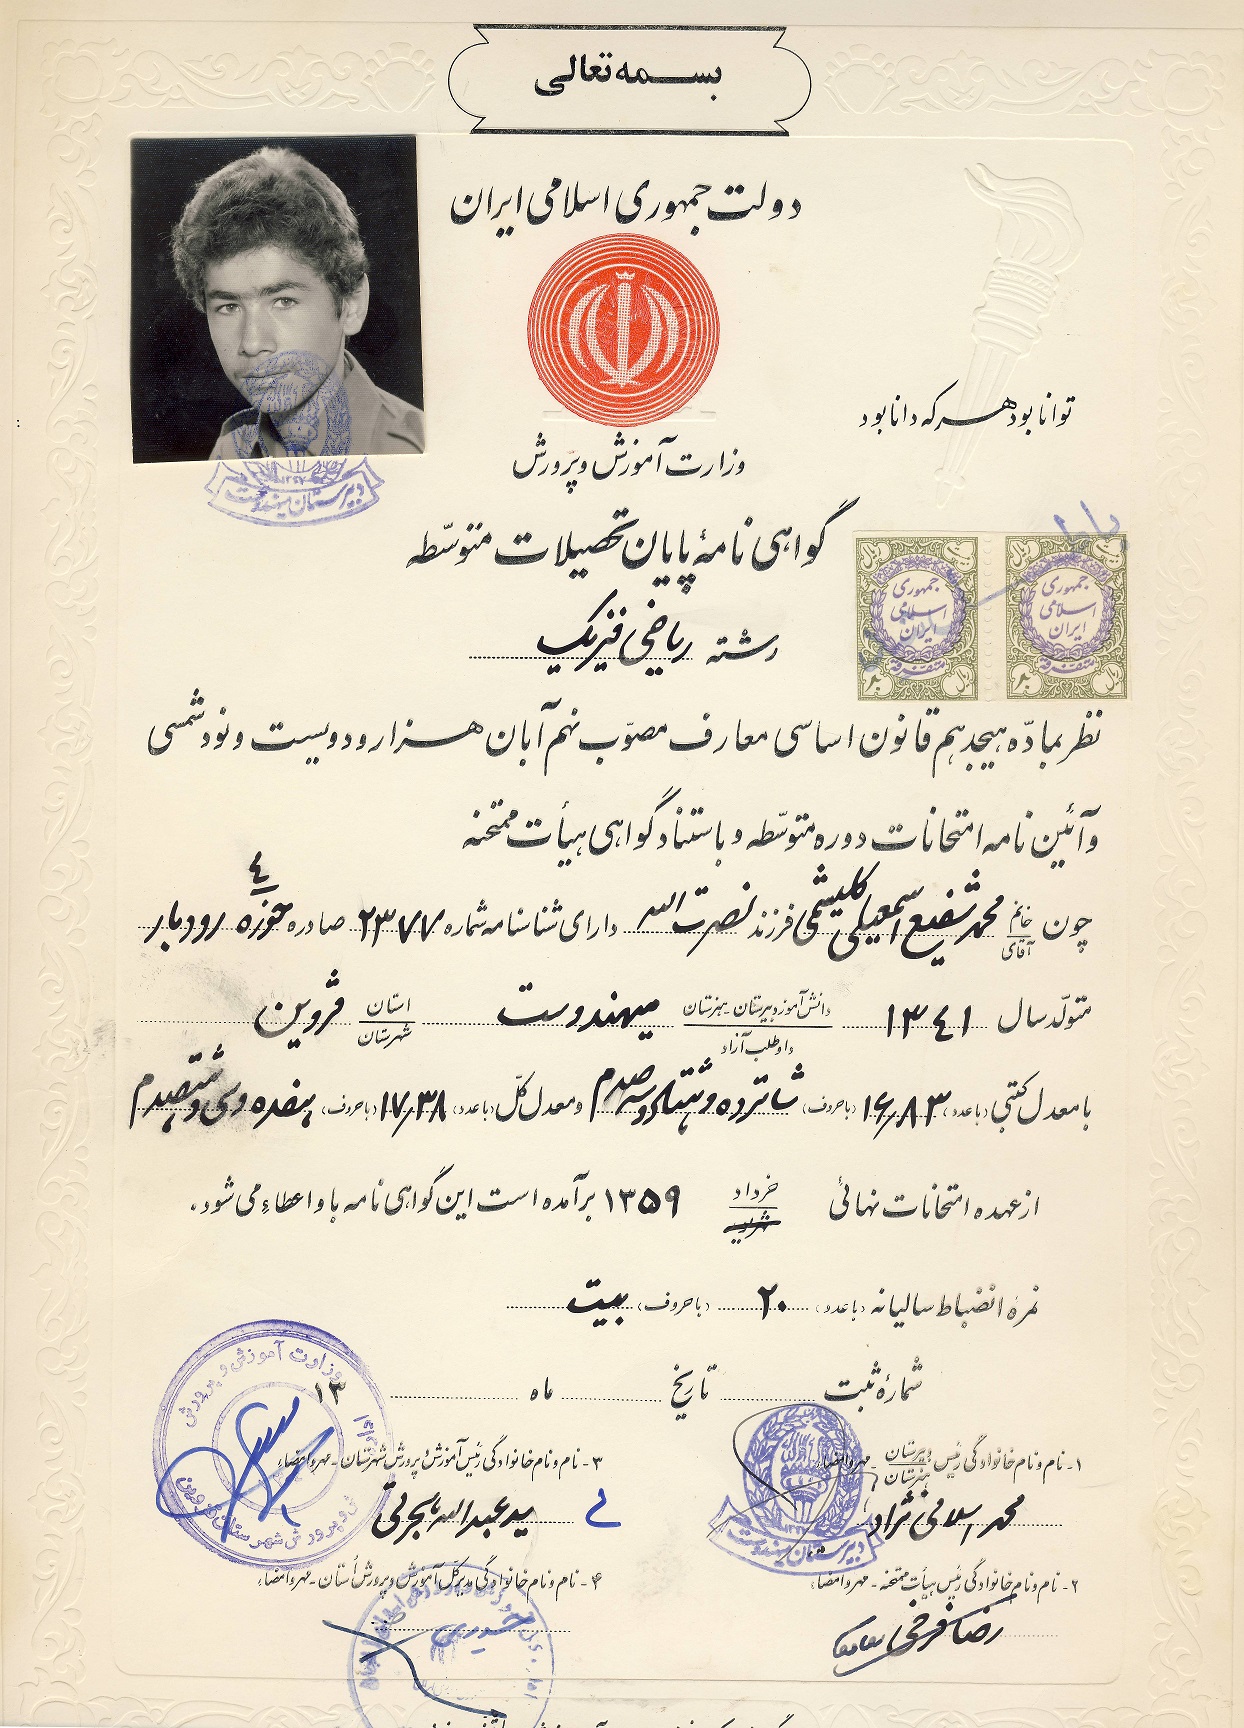 بسمه تعالی
دولت جمهوری اسلامی ایران
توانا بود هر که دانا بود
وزارت آموزش و پرورش
دبیرستان میهندوست
گواهی نامهٔ پایان تحصیلات متوسّطه
جمهوری اسلامی ایران
متفرقه
ریال
جمهوری اسلامی ایران
متفرقه
ریال
رشته ریاضی فیزیک
نظر بمادّه هیجدهم قانون اساسی معارف مصوّب نهم آبان هزار و دویست و نود شمسی
و آئین نامه امتحانات دوره متوسّطه و باستناد گواهی هیأت ممتحنه
چون خانم آقای محمد شفیع اسمعیلی کلیشمی فرزند نصرت الله دارای شناسنامه شماره ۲۳۷۷ صادره حوزه ٤ رودبار
متولّد سال ۱۳٤۱ دانش آموز دبیرستان - هنرستان داوطلب آزاد میهندوست استان شهرستان قزوین
با معدل کتبی (با عدد) ۱۶/۸۳ (با حروف) شانزده و هشتاد و سه صدم و معدل کلّ (با عدد) ۱۷/۳۸ (با حروف) هفده و سی و هشت صدم
از عهده امتحانات نهائی خرداد شهریور ۱۳۵۹ برآمده است این گواهی نامه باو اعطاء می شود.
نمره انضباط سالیانه (با عدد) ۲۰ (با حروف) بیست
شمارهٔ ثبت تاریخ ماه ۱۳
۱- نام و نام خانوادگی رئیس دبیرستان هنرستان - مهر و امضاء
محمد اسلامی نژاد
دبیرستان میهندوست
۳- نام و نام خانوادگی رئیس آموزش و پرورش شهرستان - مهر و امضاء
سید عبدالله
وزارت آموزش و پرورش
۲- نام و نام خانوادگی رئیس هیأت ممتحنه - مهر و امضاء
رضا فرخی
۴- نام و نام خانوادگی مدیر کلّ آموزش و پرورش اُستان - مهر و امضاء